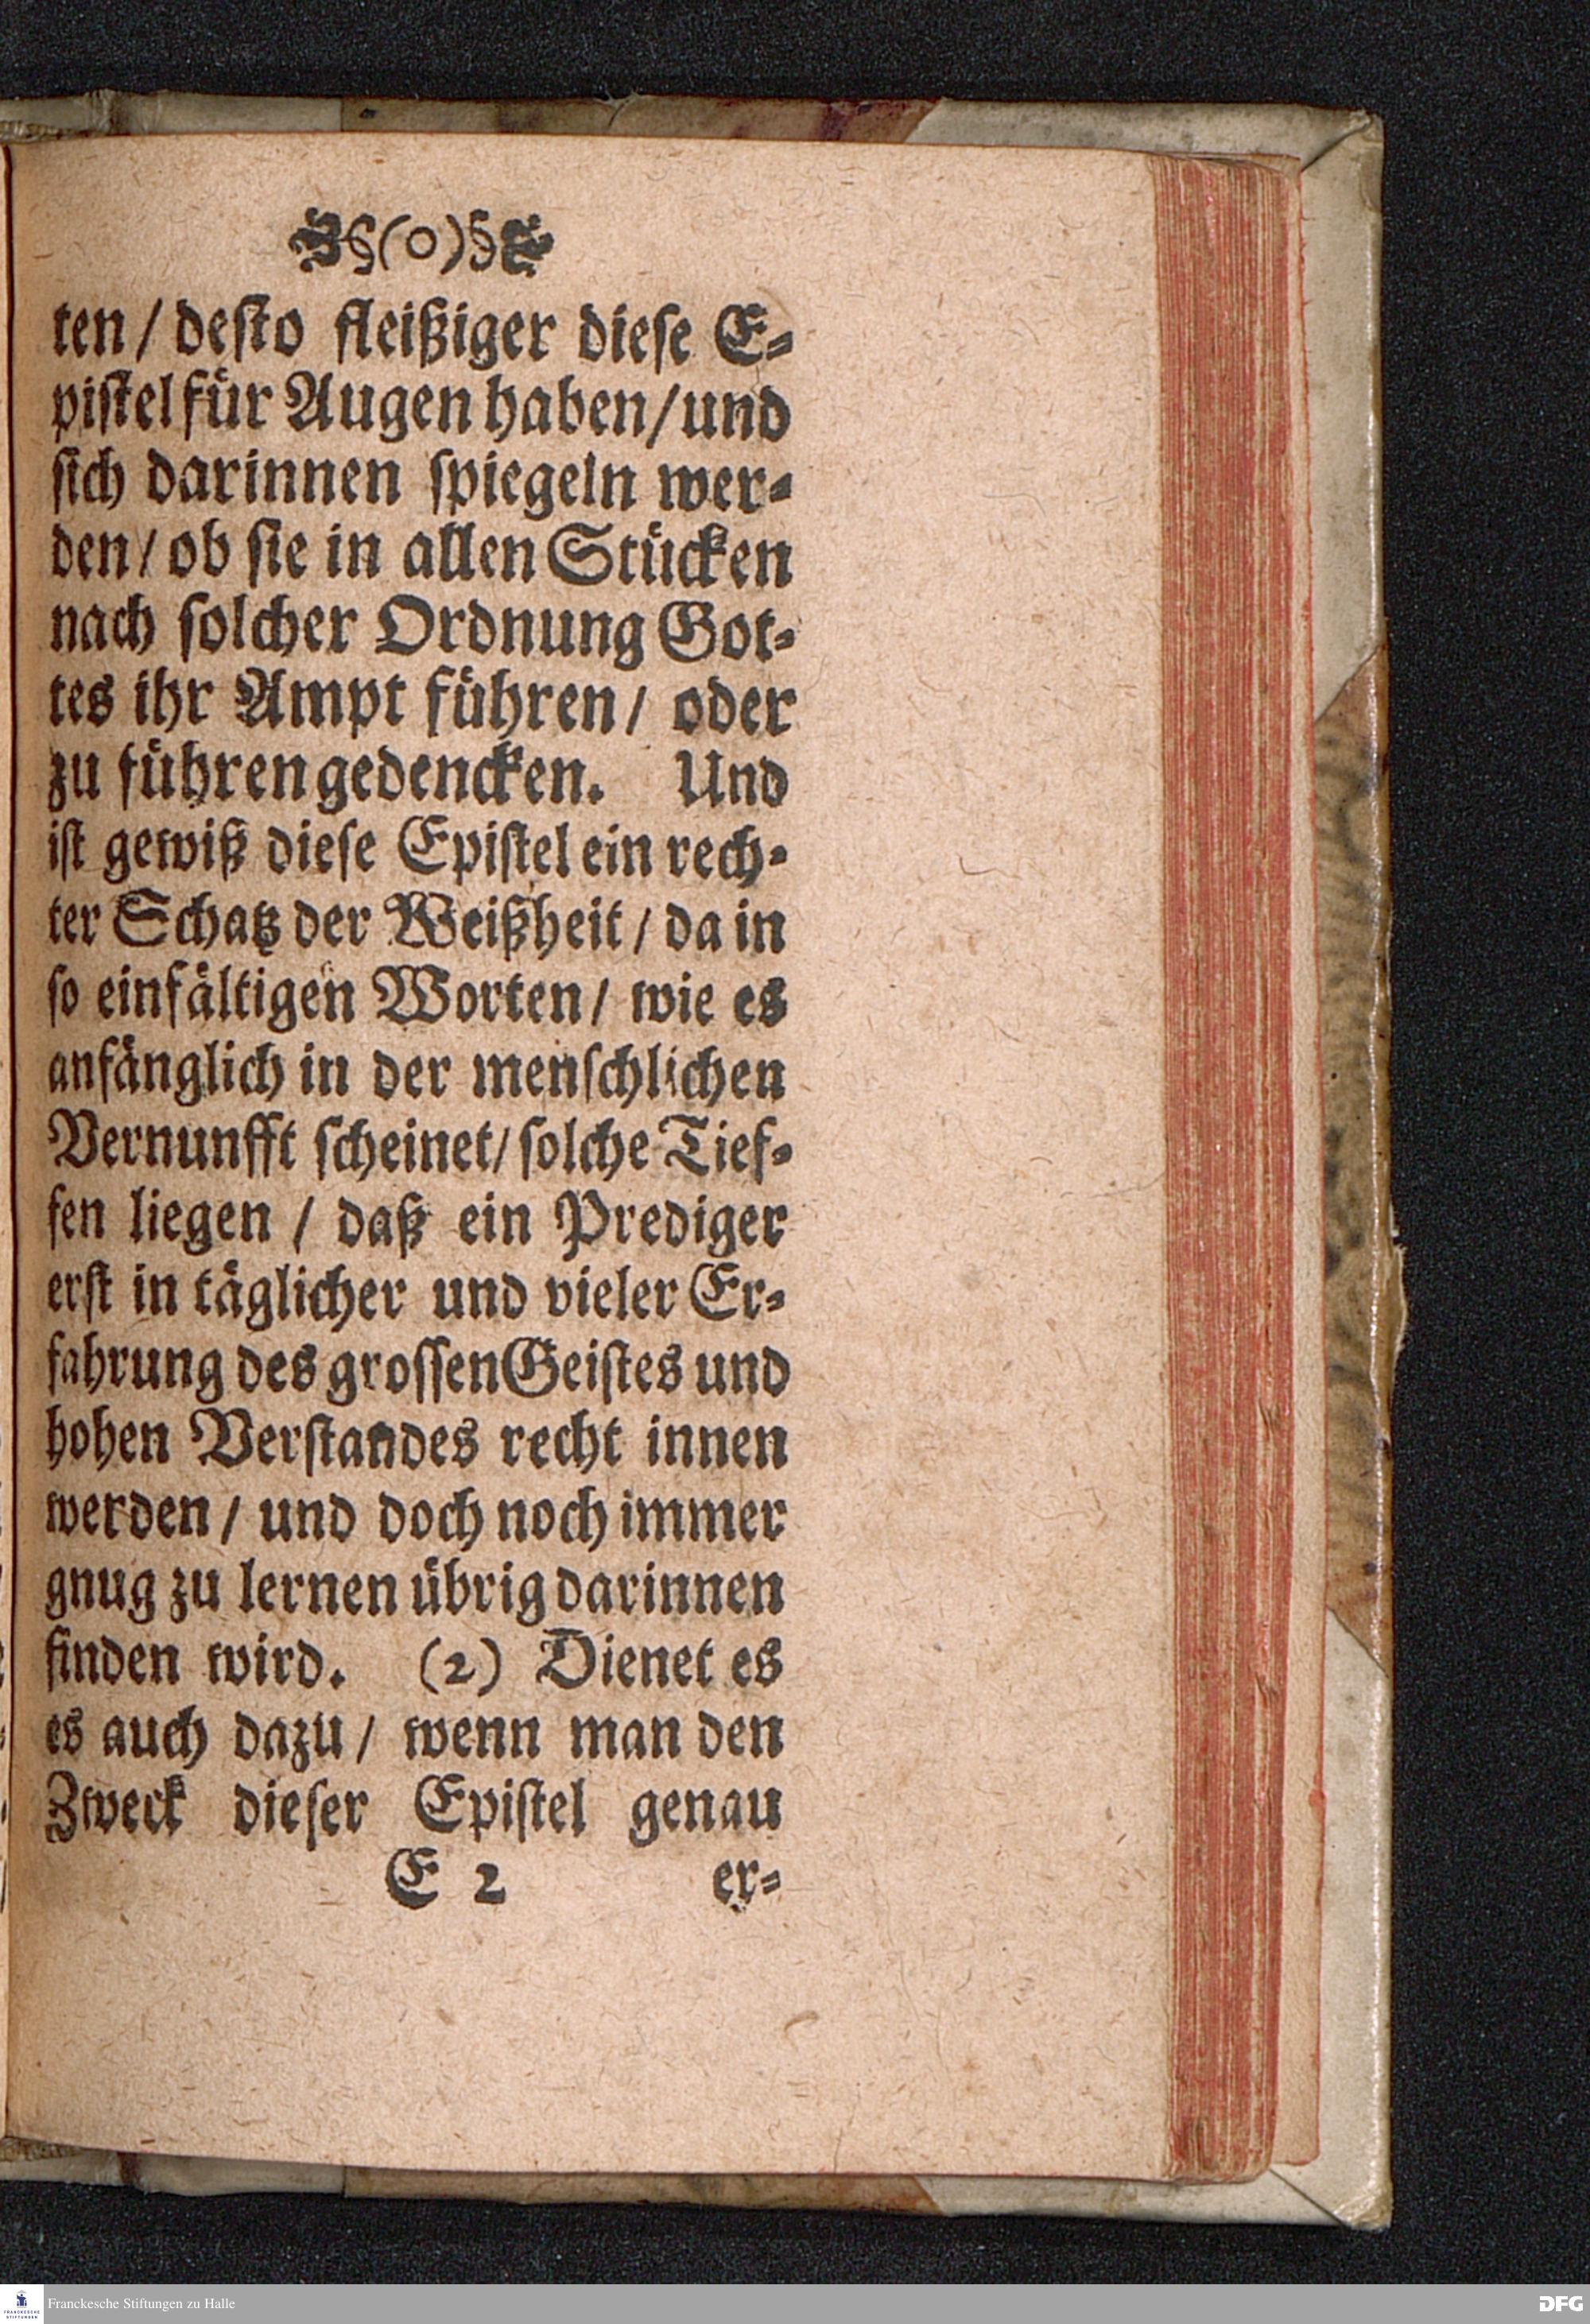 §(o)§
ten / desto fleißiger diese E-
pistel für Augen haben / und
sich darinnen spiegeln wer-
den / ob sie in allen Stücken
nach solcher Ordnung Got-
tes ihr Ampt führen / oder
zu führen gedencken. Und
ist gewiß diese Epistel ein rech-
ter Schatz der Weißheit / da in
so einfältigen Worten / wie es
anfänglich in der menschlichen
Vernunfft scheinet / solche Tief-
fen liegen / daß ein Prediger
erst in täglicher und vieler Er-
fahrung des grossen Geistes und
hohen Verstandes recht innen
werden / und doch noch immer
gnug zu lernen übrig darinnen
finden wird. (2) Dienet es
es auch dazu / wenn man den
Zweck dieser Epistel genau
E 2 er-
Franckesche Stiftungen zu Halle
FRANCKESCHE STIFTUNGEN
DFG